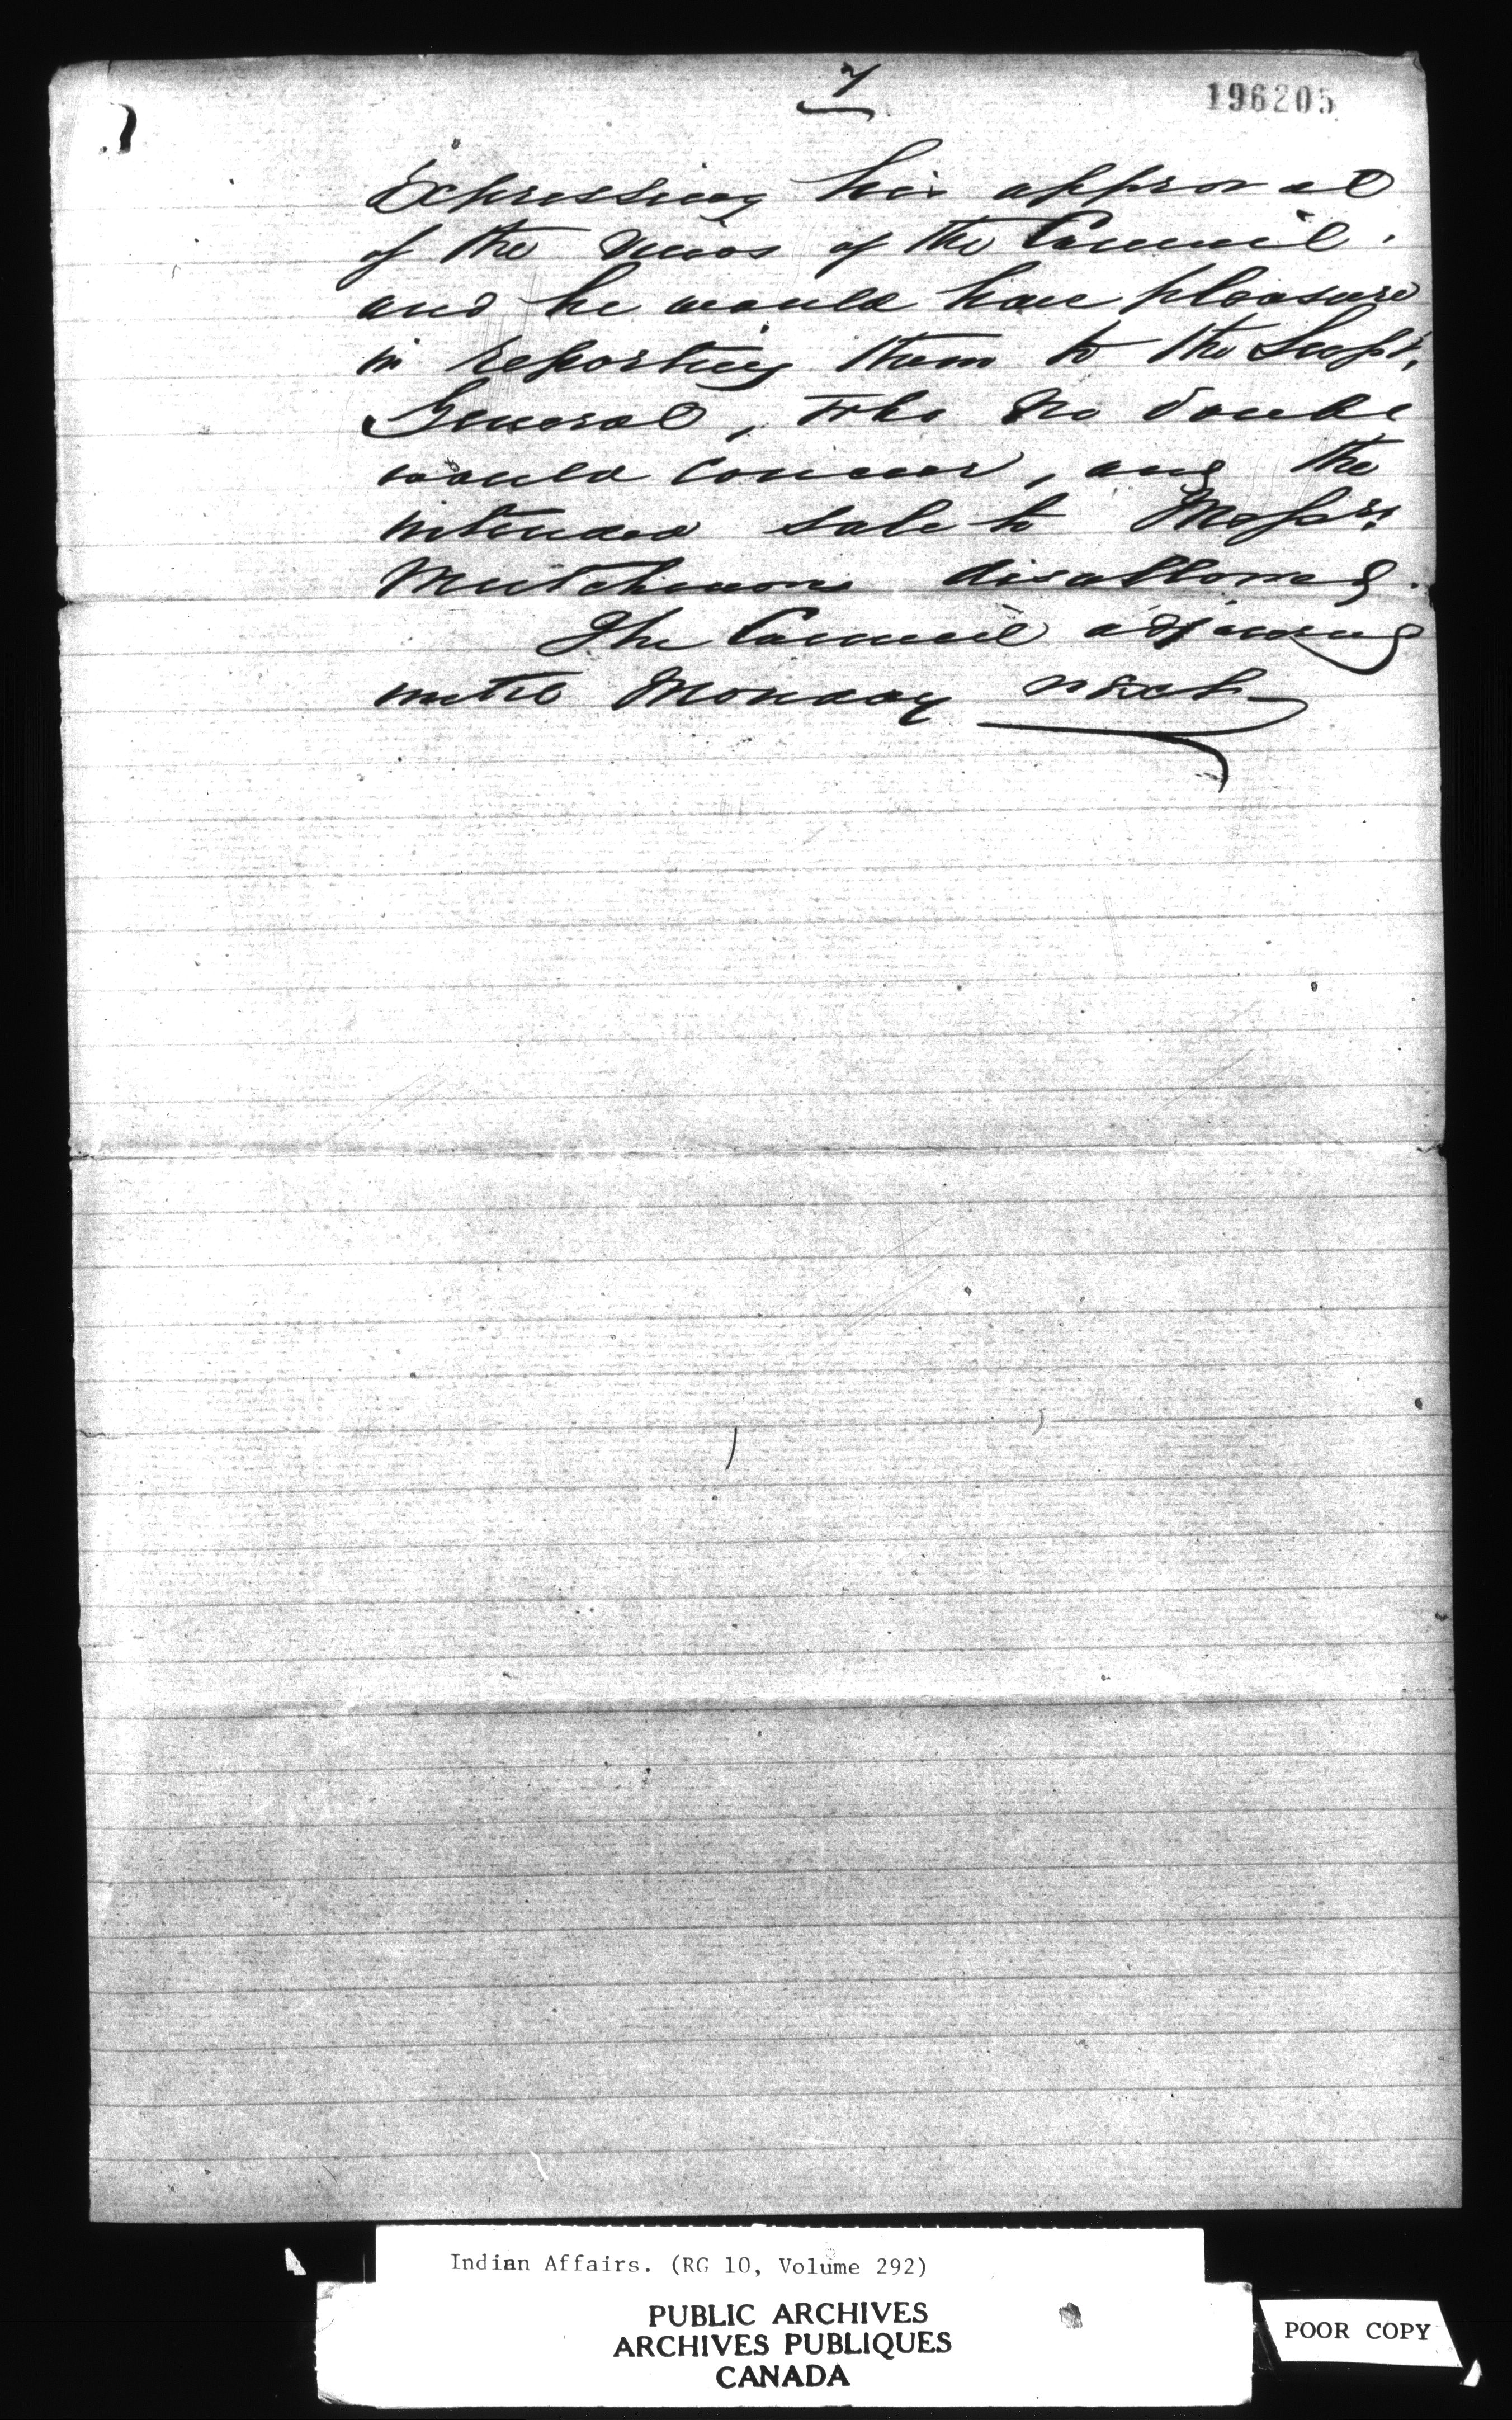 7
196205
Expressing his approval
of the views of the Council.
and he would have pleasure
in reporting them to the Supt.
General, who no doubt
would concur, and the
intended sale to Messrs.
disallowed.
The Council adjourned
until Monday next
Indian Affairs. (RG 10, Volume 292)
PUBLIC ARCHIVES
ARCHIVES PUBLIQUES
CANADA
POOR COPY